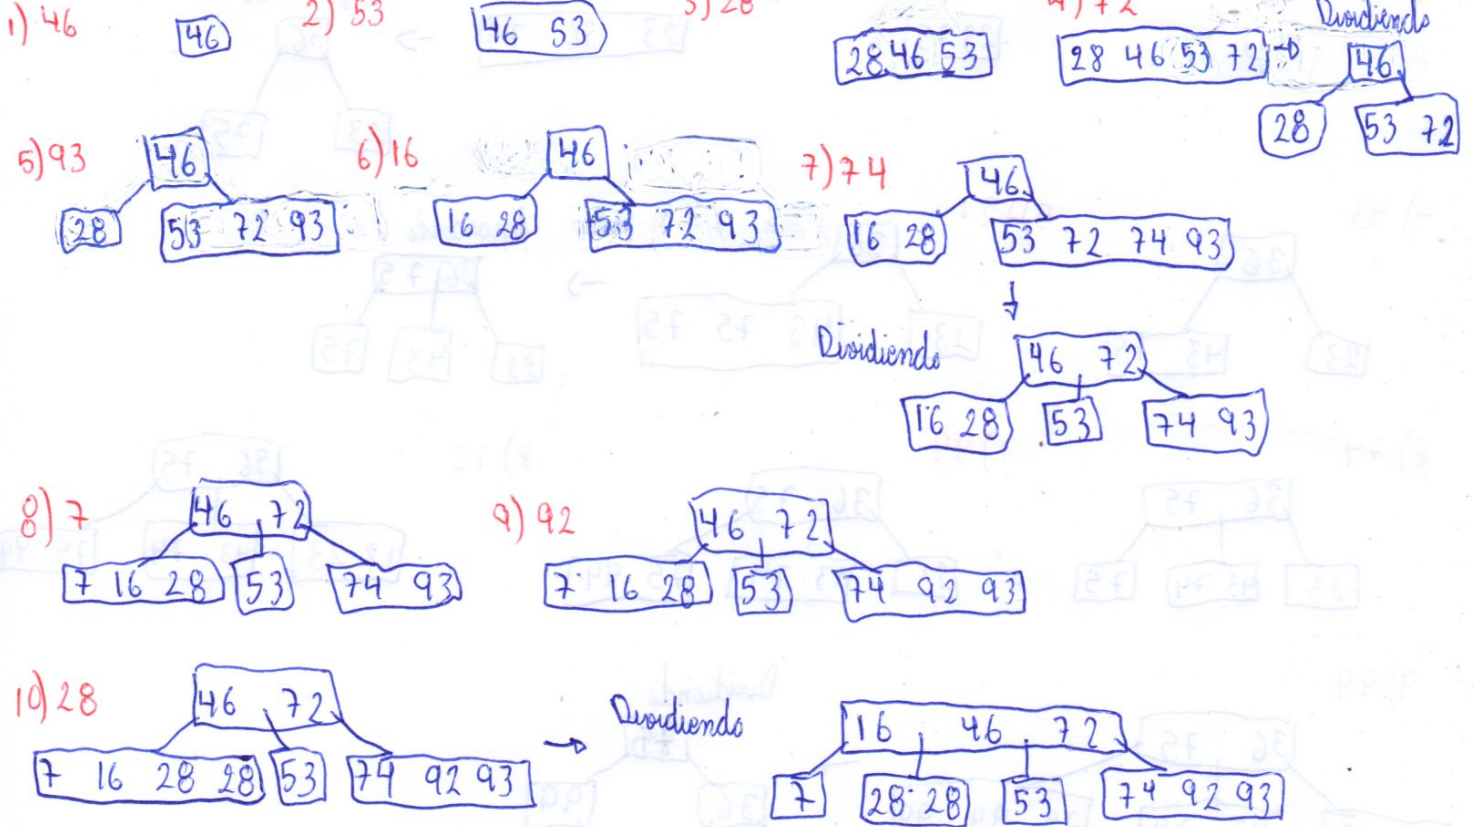 1) 46
46
2) 53
46 53
3) 28
28 46 53
4) 72
28 46 53 72
Dividiendo
46
28
53 72
5) 93
46
28
53 72 93
6) 16
46
16 28
53 72 93
7) 74
46
16 28
53 72 74 93
Dividiendo
46 72
16 28
53
74 93
8) 7
46 72
7 16 28
53
74 93
9) 92
46 72
7 16 28
53
74 92 93
10) 28
46 72
7 16 28 28
53
74 92 93
Dividiendo
16 46 72
7
28 28
53
74 92 93